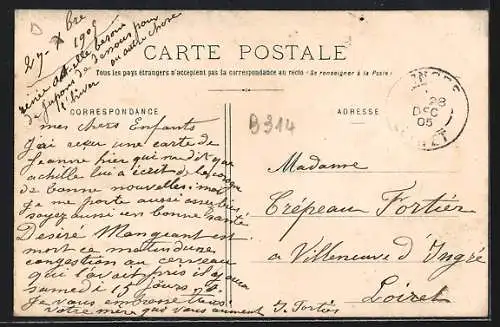 D
27 - Xbre
1905
Irénée a-t-elle besoin
de jupons de dessous pour
l'hiver ou autre chose
CARTE POSTALE
Tous les pays étrangers n'acceptent pas la correspondance au recto - Se renseigner à la Poste
CORRESPONDANCE
ADRESSE
B314
INGRÉ
28
DEC
05
LOIRET
mes chers Enfants
J'ai reçu une carte de
Jeanne hier qui me dit que
achille lui a écrit
de bonne nouvelles; moi
je me porte aussi assez bien
soyez aussi en bonne santé
Désiré Mangeant est
mort ce matin d'une
congestion au cerveau
qui l'avait pris il y aura
samedi 15 jours
Je vous embrasse tous.
Votre mère qui vous aiment
F. Fortier
Madame
Crépeau Fortier
a Villeneuve d'Ingré
Loiret